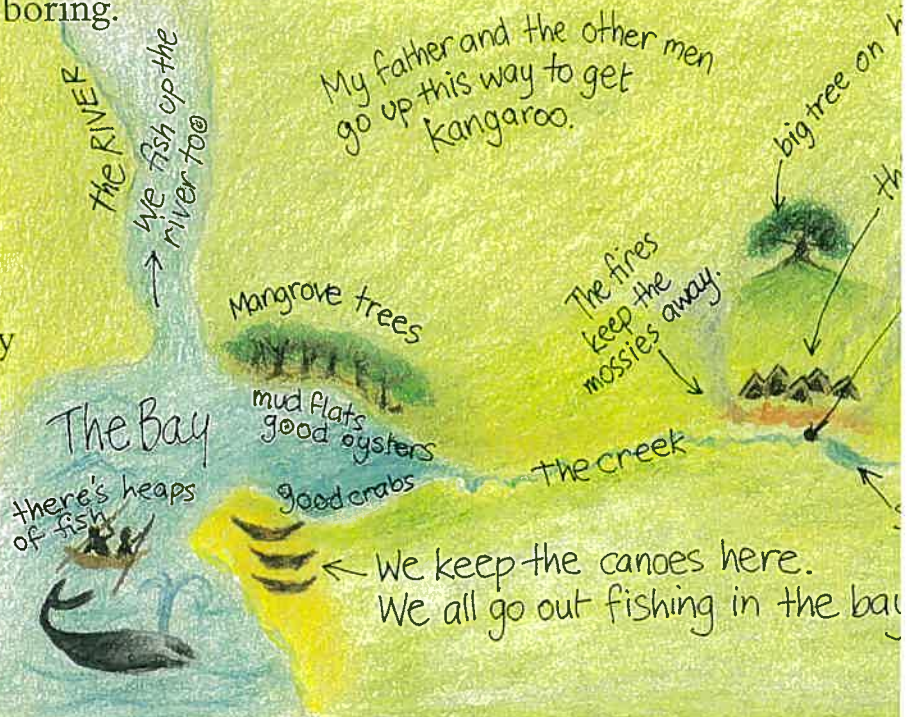 boring.
the RIVER
We fish up the
river too
My father and the other men
go up this way to get
kangaroo.
big tree on
Mangrove trees
The fires
keep the
mossies away.
The Bay
mud flats
good oysters
good crabs
the creek
there's heaps
of fish
We keep the canoes here.
We all go out fishing in the bay